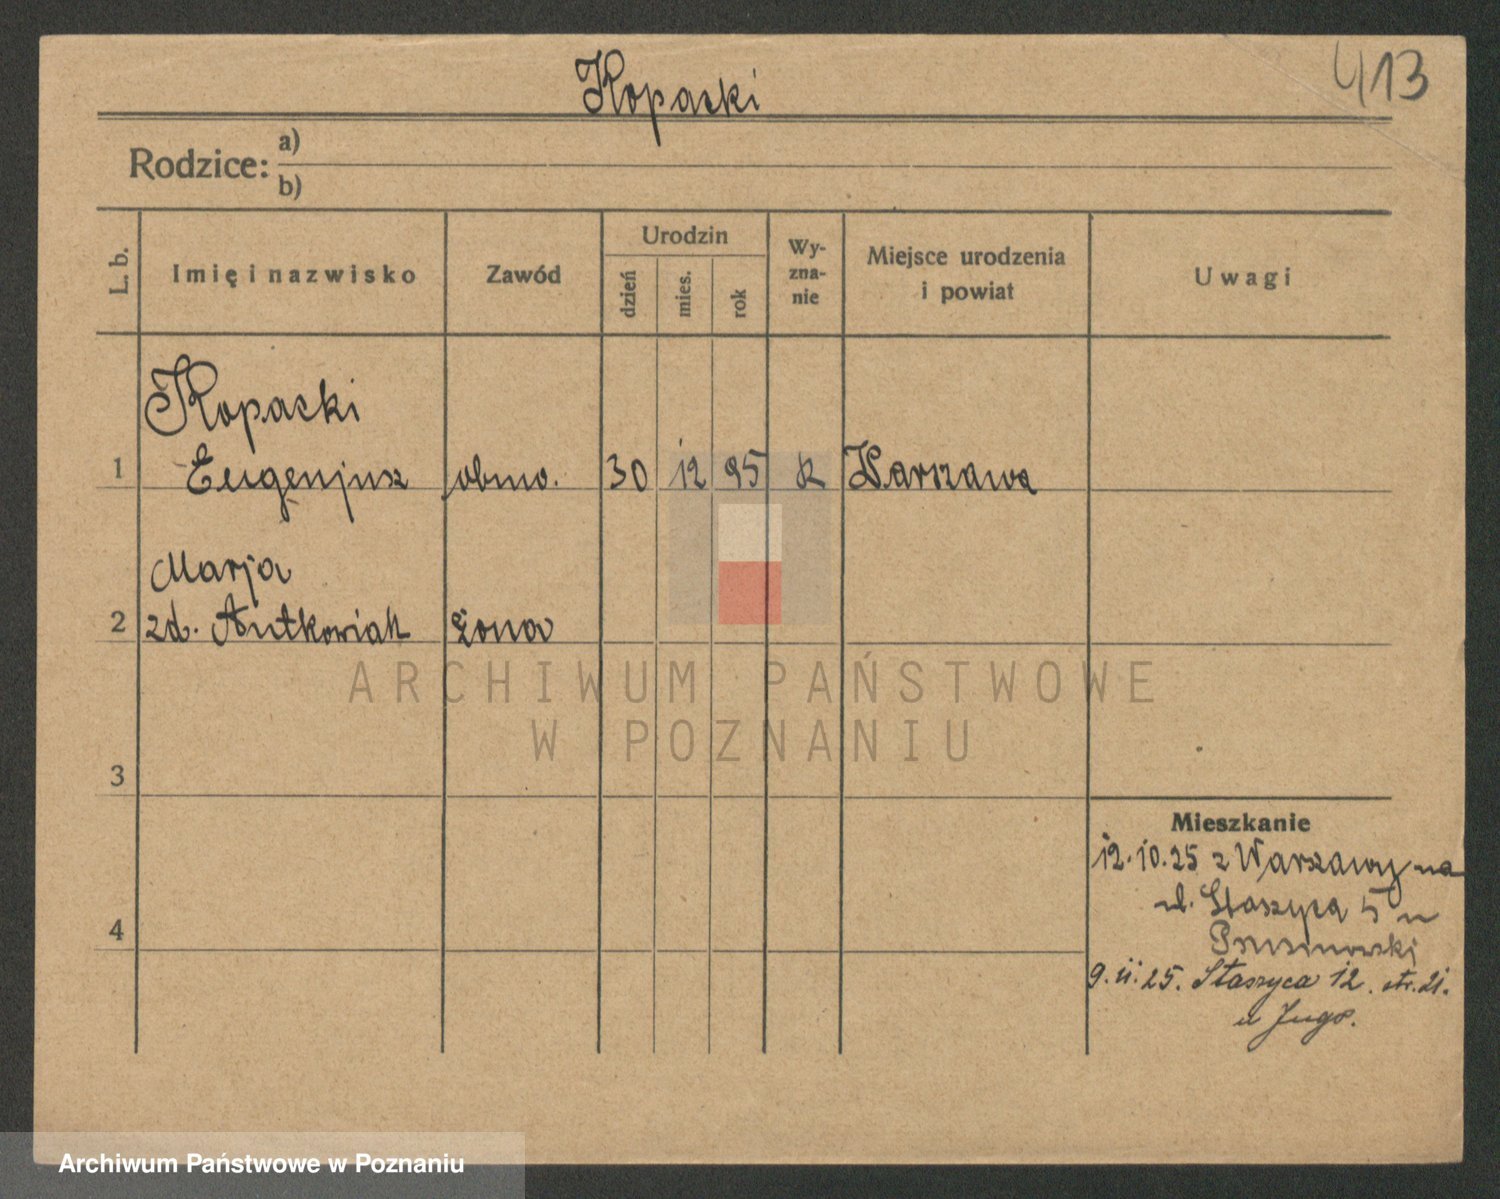 Kopacki
413
Rodzice: a)
b)
L. b.
Imię i nazwisko
Zawód
Urodzin
dzień
mies.
rok
Wy-
zna-
nie
Miejsce urodzenia
i powiat
Uwagi
Kopacki
1 Eugenjusz 30 12 95 k Warszawa
Marja
2 zd. Antkowiak żona
3
4
Mieszkanie
12.10.25 z Warszawy na
ul. Staszyca 5 u
9.11.25. Staszyca 12. str. 21.
u
ARCHIWUM PAŃSTWOWE
W POZNANIU
Archiwum Państwowe w Poznaniu